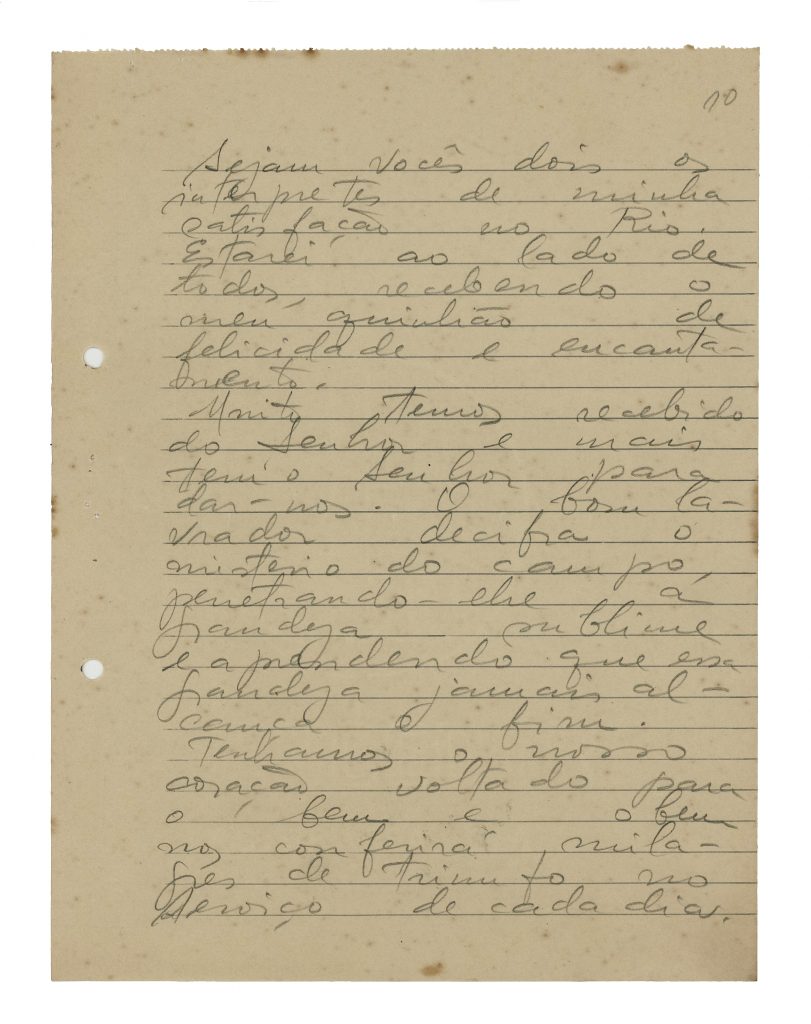 10
Sejam vocês dois os
intérpretes de minha
satisfação no Rio.
Estarei ao lado de
todos, recebendo o
meu quinhão de
felicidade e encanta-
mento.
Muito temos recebido
do Senhor e mais
tem o Senhor para
dar-nos. O bom la-
vrador decifra o
misterio do campo,
penetrando-lhe a
grandeza sublime
e aprendendo que essa
grandeza jamais al-
cança o fim.
Tenhamos o nosso
coração voltado para
o bem e o bem
nos conferirá mila-
gres de triunfo no
serviço de cada dia.